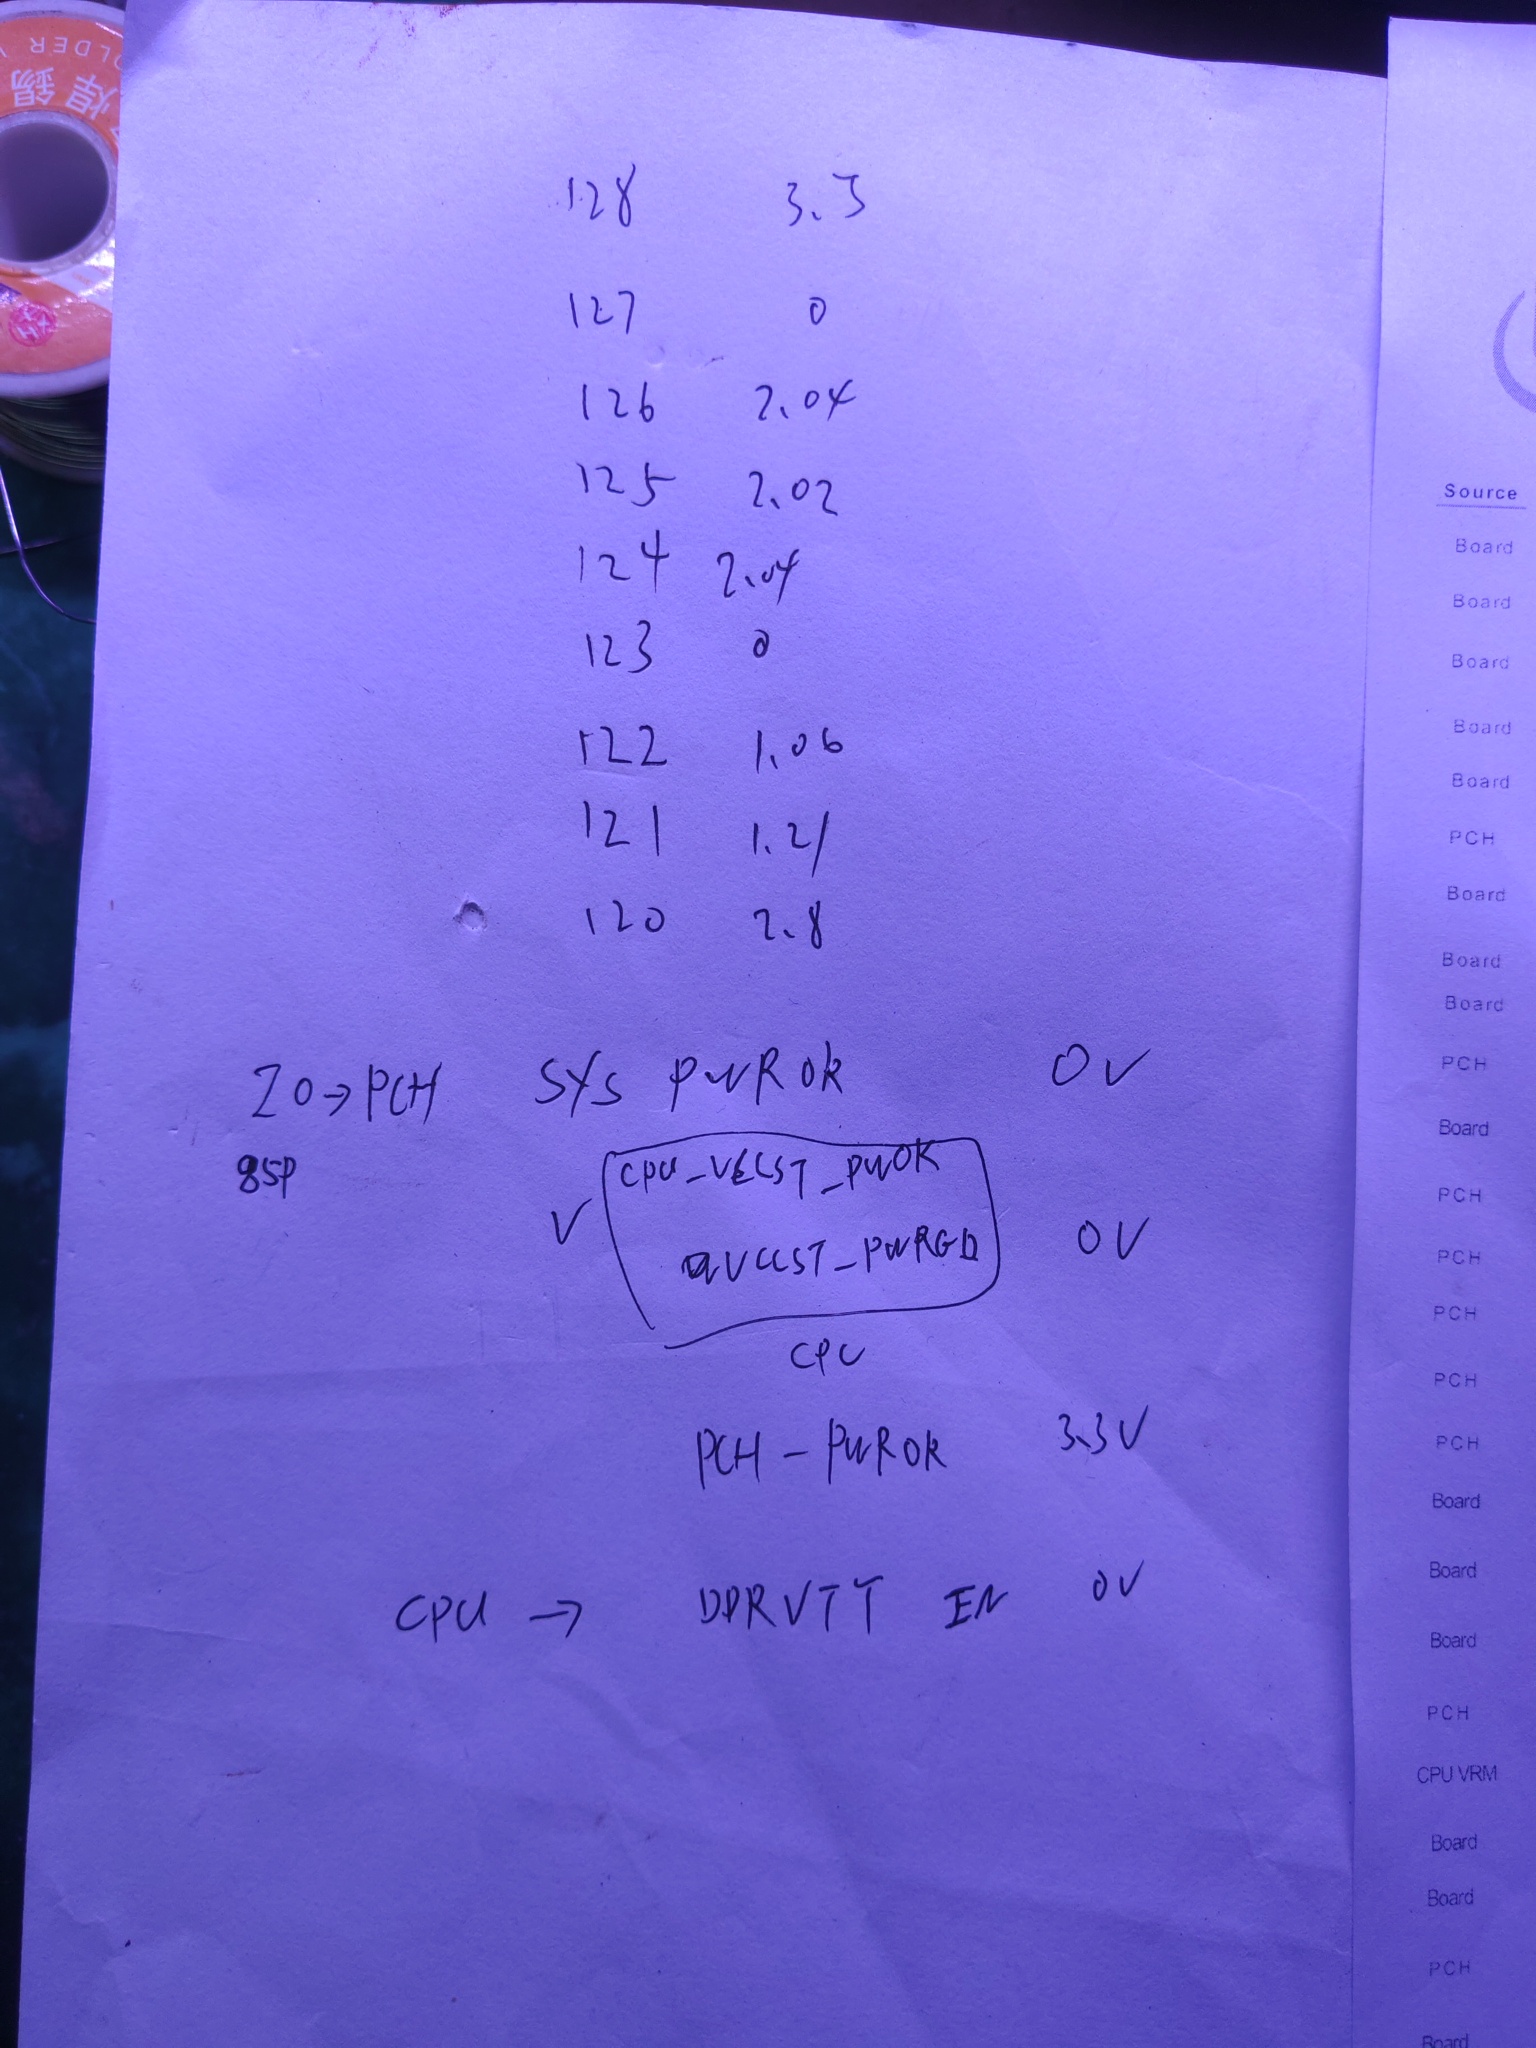 OLDER W
焊錫
128 3.3
127 0
126 2.04
125 2.02
124 2.04
123 0
122 1.06
121 1.21
120 2.8
IO→PCH SYS PWROK 0V
85P
CPU_VCCST_PWOK
VCCST_PWRGD 0V
CPU
PCH-PWROK 3.3V
CPU → DDRVTT EN 0V
Source
Board
Board
Board
Board
Board
PCH
Board
Board
Board
PCH
Board
PCH
PCH
PCH
PCH
PCH
Board
Board
Board
PCH
CPU VRM
Board
Board
PCH
Board